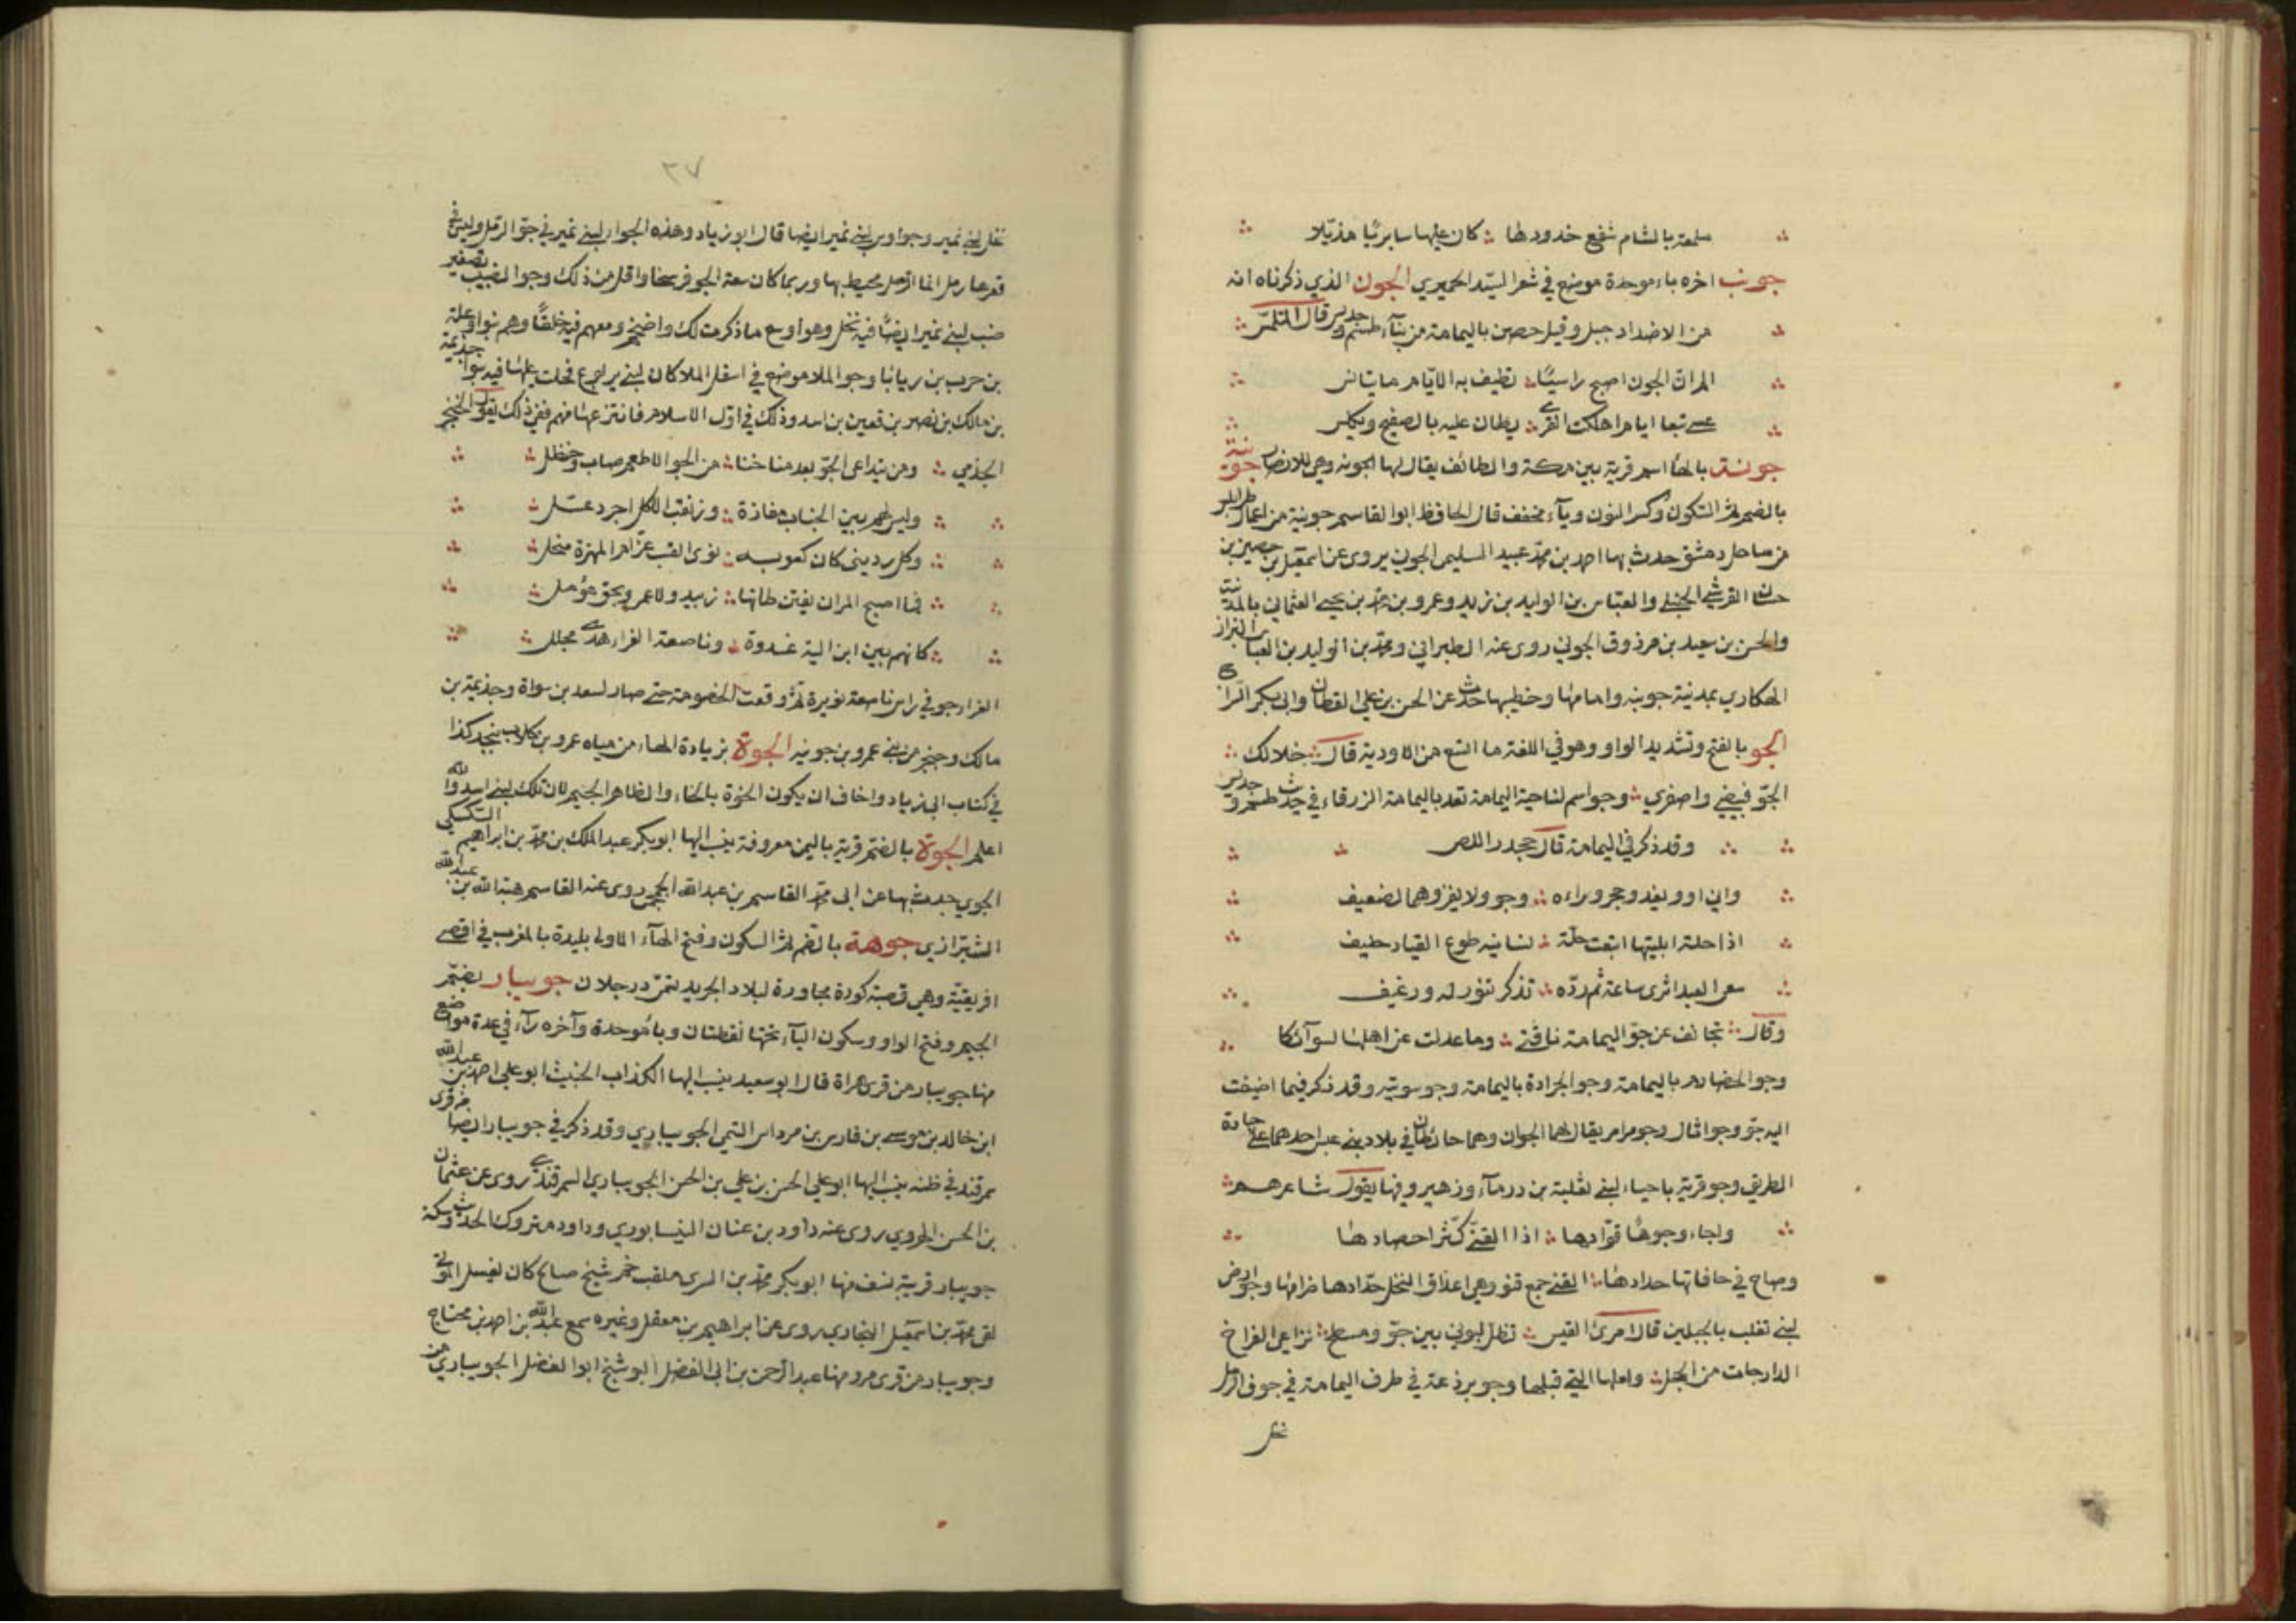 ملمعة بالشام شفع خدودها ∴ كان عليها سابريا مذيلا
جونب اخره باء موحدة موضع في شعر السيد الحميري الجون الذي ذكرناه انه
من الاضداد جبل وقيل حصن باليمامة من بناء طسم وجديس قال المتلمس
الم ان الجون اصبح راسيا ∴ تطيف به الايام ما يتانس
عصى تبعا ايام اهلكت القرى ∴ يطان عليه بالصفيح ويكلس
جونة بالهاء اسم قرية بين مكة والطائف يقال لها الجونه وهي للانصار جونية
بالضم ثم السكون وكسر النون وياء مخفف قال الحافظ ابوالقاسم جونية من اعمال طرابلس
من ساحل دمشق حدث بها احمد بن محمد عبيد السليمي الجوني يروي عن اسمعيل بن حصين بن
حسان القرشي الجبلي والعباس بن الوليد بن يزيد وعمرو بن محمد بن يحيى العثماني بالمدينة
والحسن بن سعيد بن مرذوق الجوني روى عنه الطبراني ومحمد بن الوليد بن العباس البزاز
الهكاري بمدينة جونيه وامامها وخطيبها حدث عن الحسن بن علي القطان وابي بكر الزراع
الجو بالفتح وتشديد الواو وهو في اللغة ما اتسع من الاودية قال ∴ خلا لك
الجو فبيضي واصفري ∴ وجو اسم لناحية اليمامة تعد باليمامة الزرقاء في حديث طسم وجديس
وقد ذكر في اليمامة قال جحدر اللص
واني اوو يغدو حجر وراءه ∴ وجو ولا يغزوهما لضعيف
اذا حلة ابليتها ابتعت حلة ∴ لسانيه طوع القياد حليف
سعى العبد اثري ساعة ثم رده ∴ تذكر تنور له ورغيف
وقال ∴ تجانف عن جو اليمامة ناقتي ∴ وما عدلت عن اهلها لسوآئكا
وجو الخضارم باليمامة وجو الجرادة باليمامة وجو سويقه وقد ذكر فيما اضيفت
اليه جو وجو اثال وجو مرامر يقال لهما الجوان وهما حائطان في بلاد بني عبس احدهما على جادة
الطريق وجو قرية باجاء لبني ثعلبة بن درمآء وزهير وفيها يقول شاعرهم
واجاء وجوها قوادها ∴ اذا القني كثر احصادها
وصاح في حافاتها حدادها ∴ القني جمع قنو وهي اعذاق النخل حدادها صرامها وجو ارض
لبني تغلب بالجبلين قال امرئ القيس ∴ تظل لبوني بين جو ومسطح ∴ تراعي الفراخ
الدارجات من الحجل ∴ ولعلها التي قبلها وجو برذعة في طرف اليمامة في جوف الرمل
نخل
٣٧
نخل لبني نمير وجو اوس لبني نمير ايضا قال ابو زياد وهذه الجوا لبني نمير في جو الرمل وليس في
قعرها رمل انما الرمل محيط بها وربما كان سعة الجو فرسخا واقل من ذلك وجو الضبيب تصغير
ضب لبني نمير ايضا فيه نخل وهو اوسع ما ذكرت لك واضخم ومعهم فيه خلفا وهم بنو اوعلة
بن حرب بن ريابا وجو الملا موضع في اسفل الملا كان لبني يربوع فحلت عليها فيه بنوا جذيمة
بن مالك بن نصر بن قعين بن اسد وذلك في اول الاسلام فانتزعها منهم ففي ذلك يقول الخنجر
الجذمي ∴ ومن يتداعى الجو بعد مناخنا ∴ من الجو الا طعم صاب وحنظل
وليس لهم بين الجناب مفازة ∴ وزنقب الا كل اجرد عنتل
وكل رديني كان كعوبه ∴ نوى القسب عراص المهزة منجل
فما اصبح المران يفتن طابها ∴ زبيد ولا عمرو بحق مؤمل
كانهم بين ابن الية غدوة ∴ وناصعة الغراء هدى مجلل
الغراء جو في راس ناصعة نويرة ثم وقعت الخصومة حتى صار لسعد بن سواة وجذيمة بن
مالك وحنجر من بني عمرو بن جوينه الجوة بزيادة الهاء من مياه عمرو بن كلاب بنجد كذا
في كتاب ابي زياد واخاف ان يكون الخوة بالخاء والظاهر الجيم لان تلك لبني اسد والله
اعلم الجوة بالضم قرية باليمن معروفة ينسب اليها ابو بكر عبد الملك بن محمد بن ابراهيم السكسكي
الجوي حدث بها عن ابي محمد القاسم بن عبدالله الجمحي روى عنه القاسم هبة الله بن عبدالله
الشيرازي جوهة بالضم ثم السكون وفتح الهآء الاولى بليدة بالمغرب في اقصى
افريقية وهي قصبة كورة مجاورة لبلاد الجريد تسمى ورجلان جويبار بضم
الجيم وفتح الواو وسكون اليآء تحتها نقطتان وباء موحدة وآخره رآء في عدة مواضع
منها جويبار من قرى هراة قال ابو سعيد ينسب اليها الكذاب الخبيث ابو علي احمد بن عبدالله
ابن خالد بن موسى بن فارس بن مرداس التيمي الجويباري وقد ذكر في جويبار ايضا من قرى
سمرقند في ظنه ينسب اليها ابو علي الحسن بن علي بن الحسن الجويباري السمرقندي روى عن عثمان
بن الحسن الهروي روى عنه داود بن عنان النيسابوري وداود متروك الحديث وسكة
جويبار قرية بنسف منها ابو بكر محمد بن السري ملقب خم شيخ صالح كان يغسل الموتى
لقى محمد بن اسمعيل البخاري روى عن ابراهيم بن معقل وغيره سمع عبدالله بن احمد بن محتاج
وجويبار من قرى مرو منها عبد الرحمن بن ابي الفضل البوشنج ابو الفضل الجويباري من